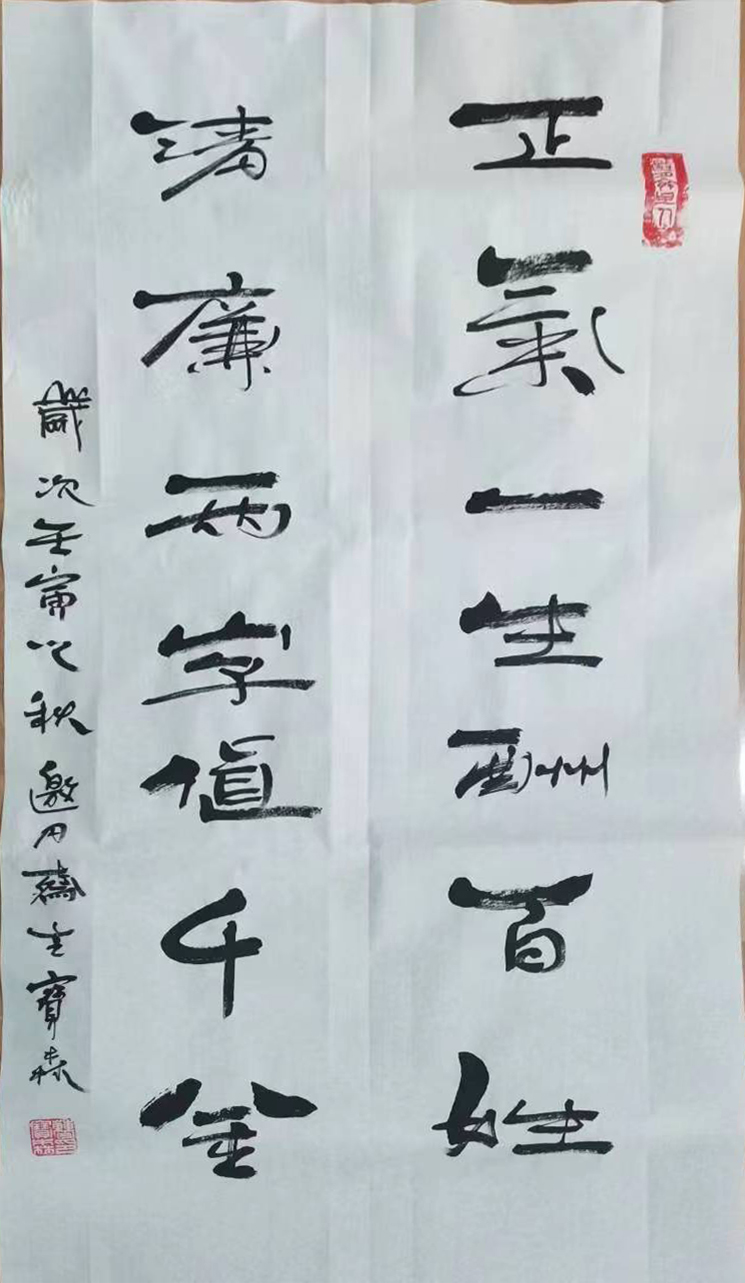 正氣一生酬百姓
清廉两字值千金
歲次壬寅之秋邀月齋主寶森